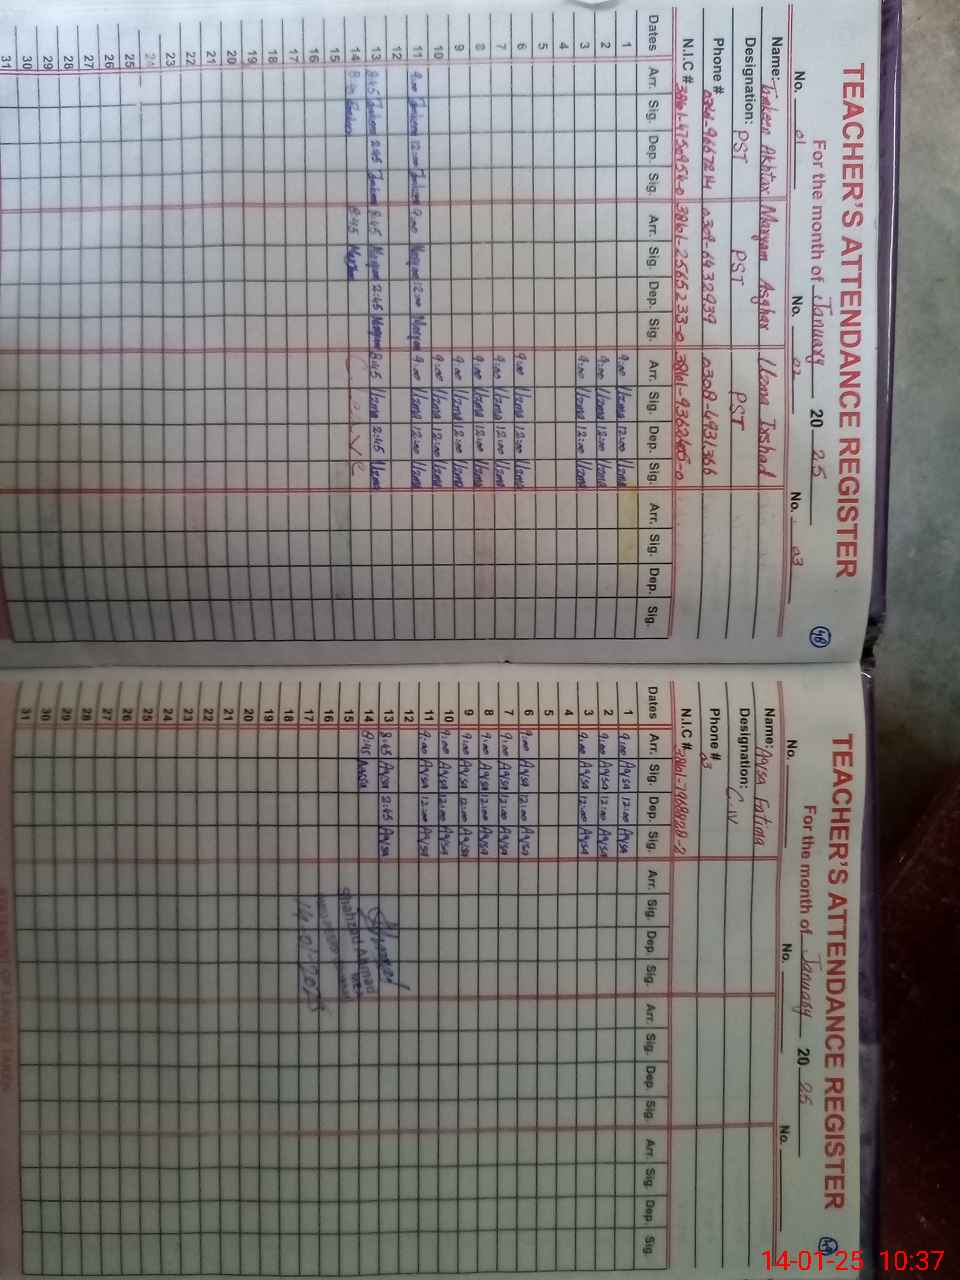 TEACHER'S ATTENDANCE REGISTER
For the month of January 2025
No. 01 No. 02 No. 03
Name: Akhtar Maryam Asghar Uzma Irshad
Designation: PST PST PST
Phone # 0309-6432939 0308-4931366
N.I.C #
Dates Arr. Sig. Dep. Sig. Arr. Sig. Dep. Sig. Arr. Sig. Dep. Sig. Arr. Sig. Dep. Sig.
1 9:00 Uzma 12:00 Uzma
2 9:00 Uzma 12:00 Uzma
3 9:00 Uzma 12:00 Uzma
4
5
6 9:00 Uzma 12:00 Uzma
7 9:00 Uzma 12:00 Uzma
8 9:00 Uzma 12:00 Uzma
9 9:00 Uzma 12:00 Uzma
10 9:00 Uzma 12:00 Uzma
11 9:00 12:00 9:00 Maryam 12:00 Maryam 9:00 Uzma 12:00 Uzma
12
13 2:45 8:45 Maryam 2:45 Maryam 8:45 Uzma 2:45 Uzma
14 8:45 Maryam
15
16
17
18
19
20
21
22
23
24
25
26
27
28
29
30
31
TEACHER'S ATTENDANCE REGISTER
For the month of January 2025
No. No. No.
Name: Aqsa Fatima
Designation: C-IV
Phone # 03
N.I.C #
Dates Arr. Sig. Dep. Sig. Arr. Sig. Dep. Sig. Arr. Sig. Dep. Sig. Arr. Sig. Dep. Sig.
1 9:00 Aqsa 12:00 Aqsa
2 9:00 Aqsa 12:00 Aqsa
3 9:00 Aqsa 12:00 Aqsa
4
5
6 9:00 Aqsa 12:00 Aqsa
7 9:00 Aqsa 12:00 Aqsa
8 9:00 Aqsa 12:00 Aqsa
9 9:00 Aqsa 12:00 Aqsa
10 9:00 Aqsa 12:00 Aqsa
11 9:00 Aqsa 12:00 Aqsa
12
13 8:45 Aqsa 2:45 Aqsa
14 8:45 Aqsa
15
16
17
18
19
20
21
22
23
24
25
26
27
28
29
30
31
Shahzad Ahmad
14-01-2025
14-01-25 10:37